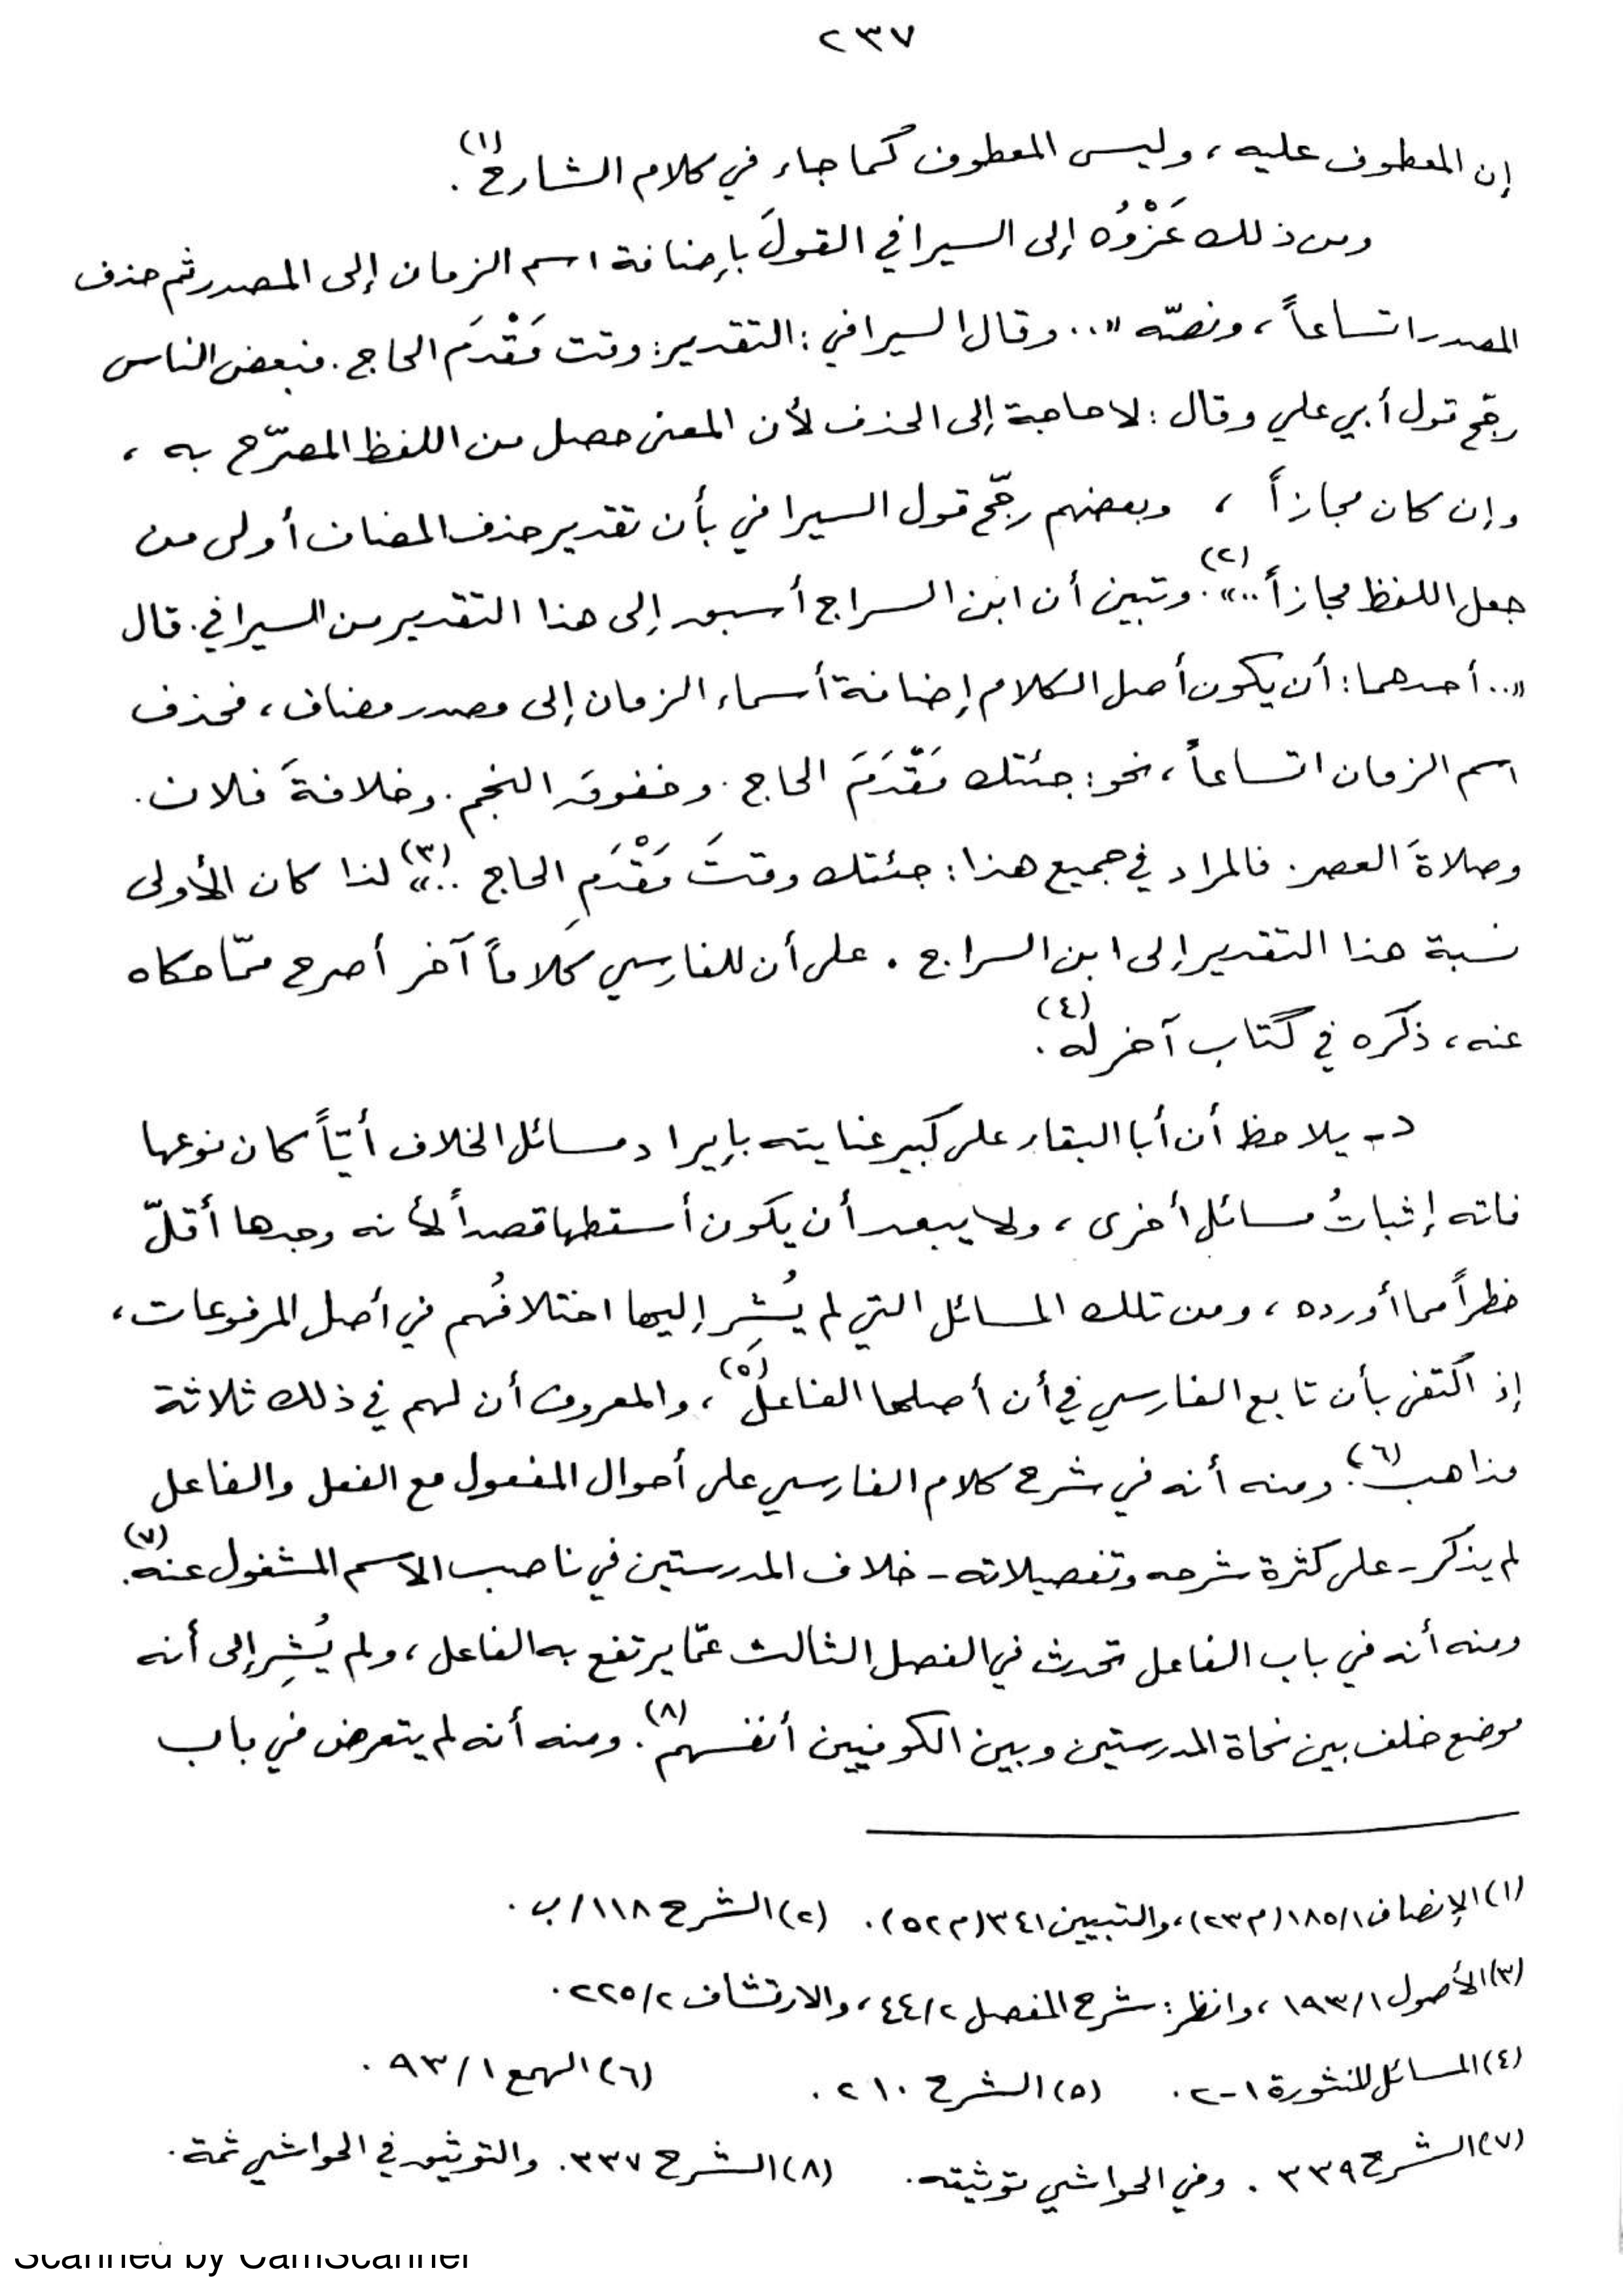 ٢٣٧
إن المعطوف عليه ، وليس المعطوف كما جاء في كلام الشارح (١) .
ومن ذلك عَزْوُه إلى السيرافي القولَ بإضافة اسم الزمان إلى المصدر ثم حذف
المصدر اتساعاً ، ونصّه « .. وقال السيرافي : التقدير : وقت مَقْدَم الحاج . فبعض الناس
رجّح قول أبي علي وقال : لا حاجة إلى الحذف لأن المعنى حصل من اللفظ المصرّح به ،
وإن كان مجازاً ، وبعضهم رجّح قول السيرافي بأن تقدير حذف المضاف أولى من
جعل اللفظ مجازاً .. » (٢) . وتبين أن ابن السراج أسبق إلى هذا التقدير من السيرافي . قال
« .. أحدهما : أن يكون أصل الكلام إضافة أسماء الزمان إلى مصدر مضاف ، فحذف
اسم الزمان اتساعاً ، نحو : جئتك مَقْدَمَ الحاج . وخفوقَ النجم . وخلافةَ فلان .
وصلاةَ العصر . فالمراد في جميع هذا : جئتك وقتَ مَقْدَمِ الحاج .. » (٣) لذا كان الأولى
نسبة هذا التقدير إلى ابن السراج . على أن للفارسي كلاماً آخر أصرح ممّا حكاه
عنه ، ذكره في كتاب آخر له (٤) .
د - يلاحظ أن أبا البقاء على كبير عنايته بإيراد مسائل الخلاف أيّاً كان نوعها
فاته إثباتُ مسائل أخرى ، ولا يبعد أن يكون أسقطها قصداً لأنه وجدها أقلّ
خطراً مما أورده ، ومن تلك المسائل التي لم يُشِر إليها اختلافُهم في أصل المرفوعات ،
إذ اكتفى بأن تابع الفارسي في أن أصلها الفاعلُ (٥) ، والمعروف أن لهم في ذلك ثلاثة
مذاهب (٦) . ومنه أنه في شرح كلام الفارسي على أحوال المفعول مع الفعل والفاعل
لم يذكر - على كثرة شرحه وتفصيلاته - خلاف المدرستين في ناصب الاسم المشغول عنه (٧) .
ومنه أنه في باب الفاعل تحدث في الفصل الثالث عمّا يرتفع به الفاعل ، ولم يُشِر إلى أنه
موضع خلف بين نحاة المدرستين وبين الكوفيين أنفسهم (٨) . ومنه أنه لم يتعرض في باب
(١) الإنصاف ١/١٨٥ (م ٢٣) ، والتبيين ٣٤١ (م ٥٢) . (٢) الشرح ١١٨/ب .
(٣) الأصول ١/١٩٣ ، وانظر : شرح المفصل ٢/٤٤ ، والارتشاف ٢/٢٢٥ .
(٤) المسائل المنثورة ١-٢ . (٥) الشرح ٢١٠ . (٦) الهمع ١/٩٣ .
(٧) الشرح ٣٣٩ . وفي الحواشي توثيقه . (٨) الشرح ٣٣٧ . والتوثيق في الحواشي ثمة .
Scanned by CamScanner